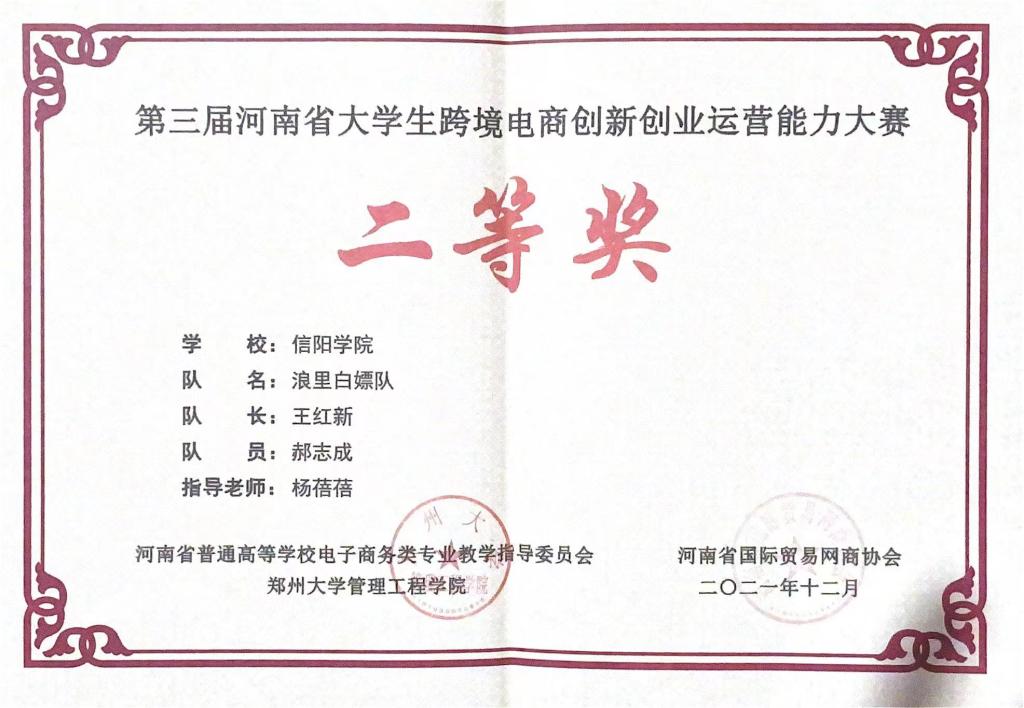 第三届河南省大学生跨境电商创新创业运营能力大赛
二等奖
学 校：信阳学院
队 名：浪里白嫖队
队 长：王红新
队 员：郝志成
指导老师：杨蓓蓓
河南省普通高等学校电子商务类专业教学指导委员会
郑州大学管理工程学院
河南省国际贸易网商协会
二〇二一年十二月
州大
学院
贸易网商